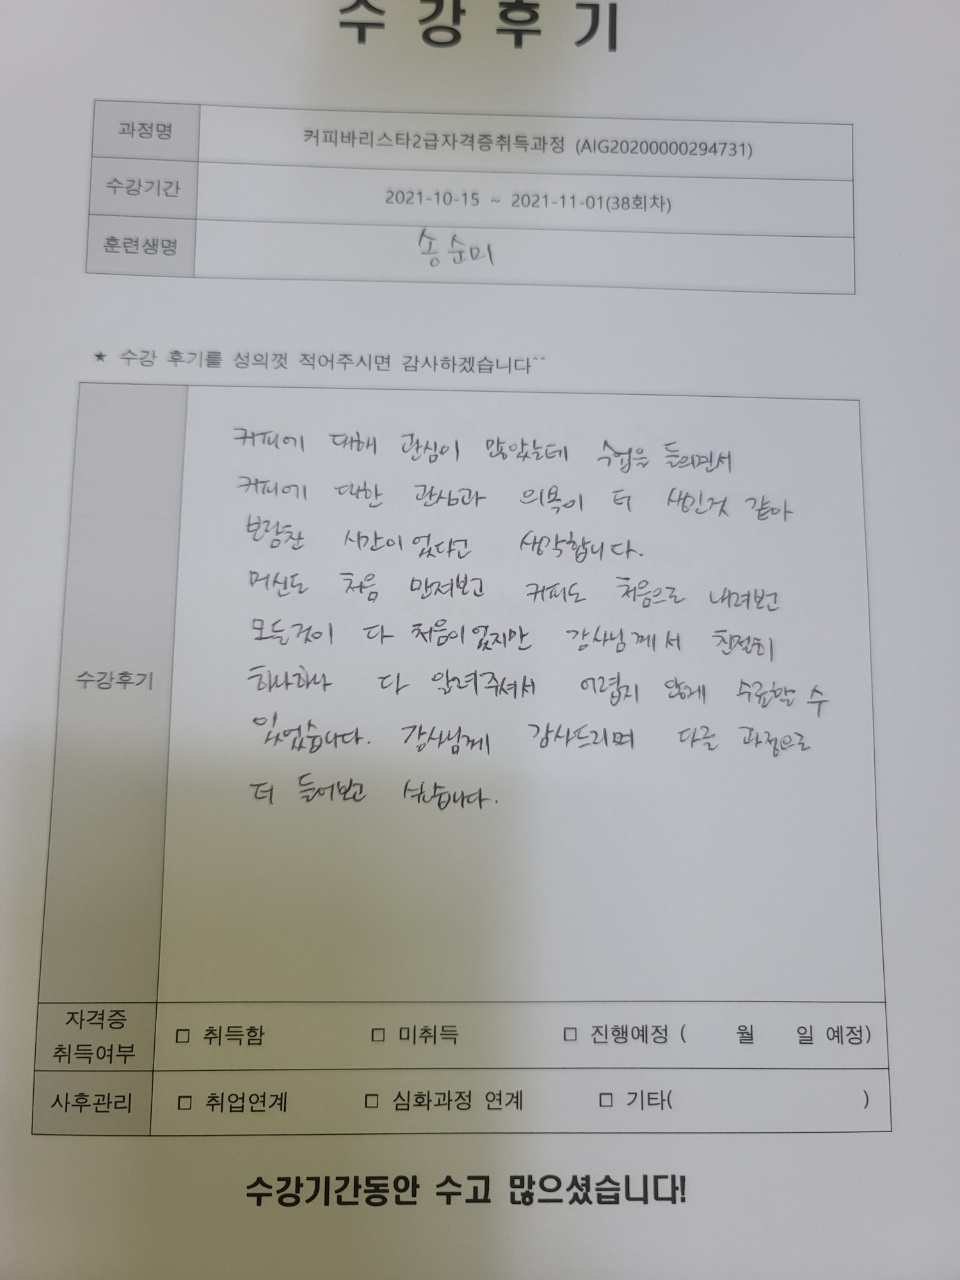 수강후기
과정명 커피바리스타2급자격증취득과정 (AIG20200000294731)
수강기간 2021-10-15 ~ 2021-11-01(38회차)
훈련생명 송순미
★ 수강 후기를 성의껏 적어주시면 감사하겠습니다^^
수강후기
커피에 대해 관심이 많았는데 수업을 들으면서
커피에 대한 관심과 의욕이 더 생긴것 같아
보람찬 시간이었다고 생각합니다.
머신도 처음 만져보고 커피도 처음으로 내려보고
모든것이 다 처음이었지만 강사님께서 친절히
하나하나 다 알려주셔서 어렵지 않게 수료할 수
있었습니다. 강사님께 감사드리며 다른 과정으로
더 들어보고 싶습니다.
자격증
취득여부 □ 취득함 □ 미취득 □ 진행예정 ( 월 일 예정)
사후관리 □ 취업연계 □ 심화과정 연계 □ 기타( )
수강기간동안 수고 많으셨습니다!